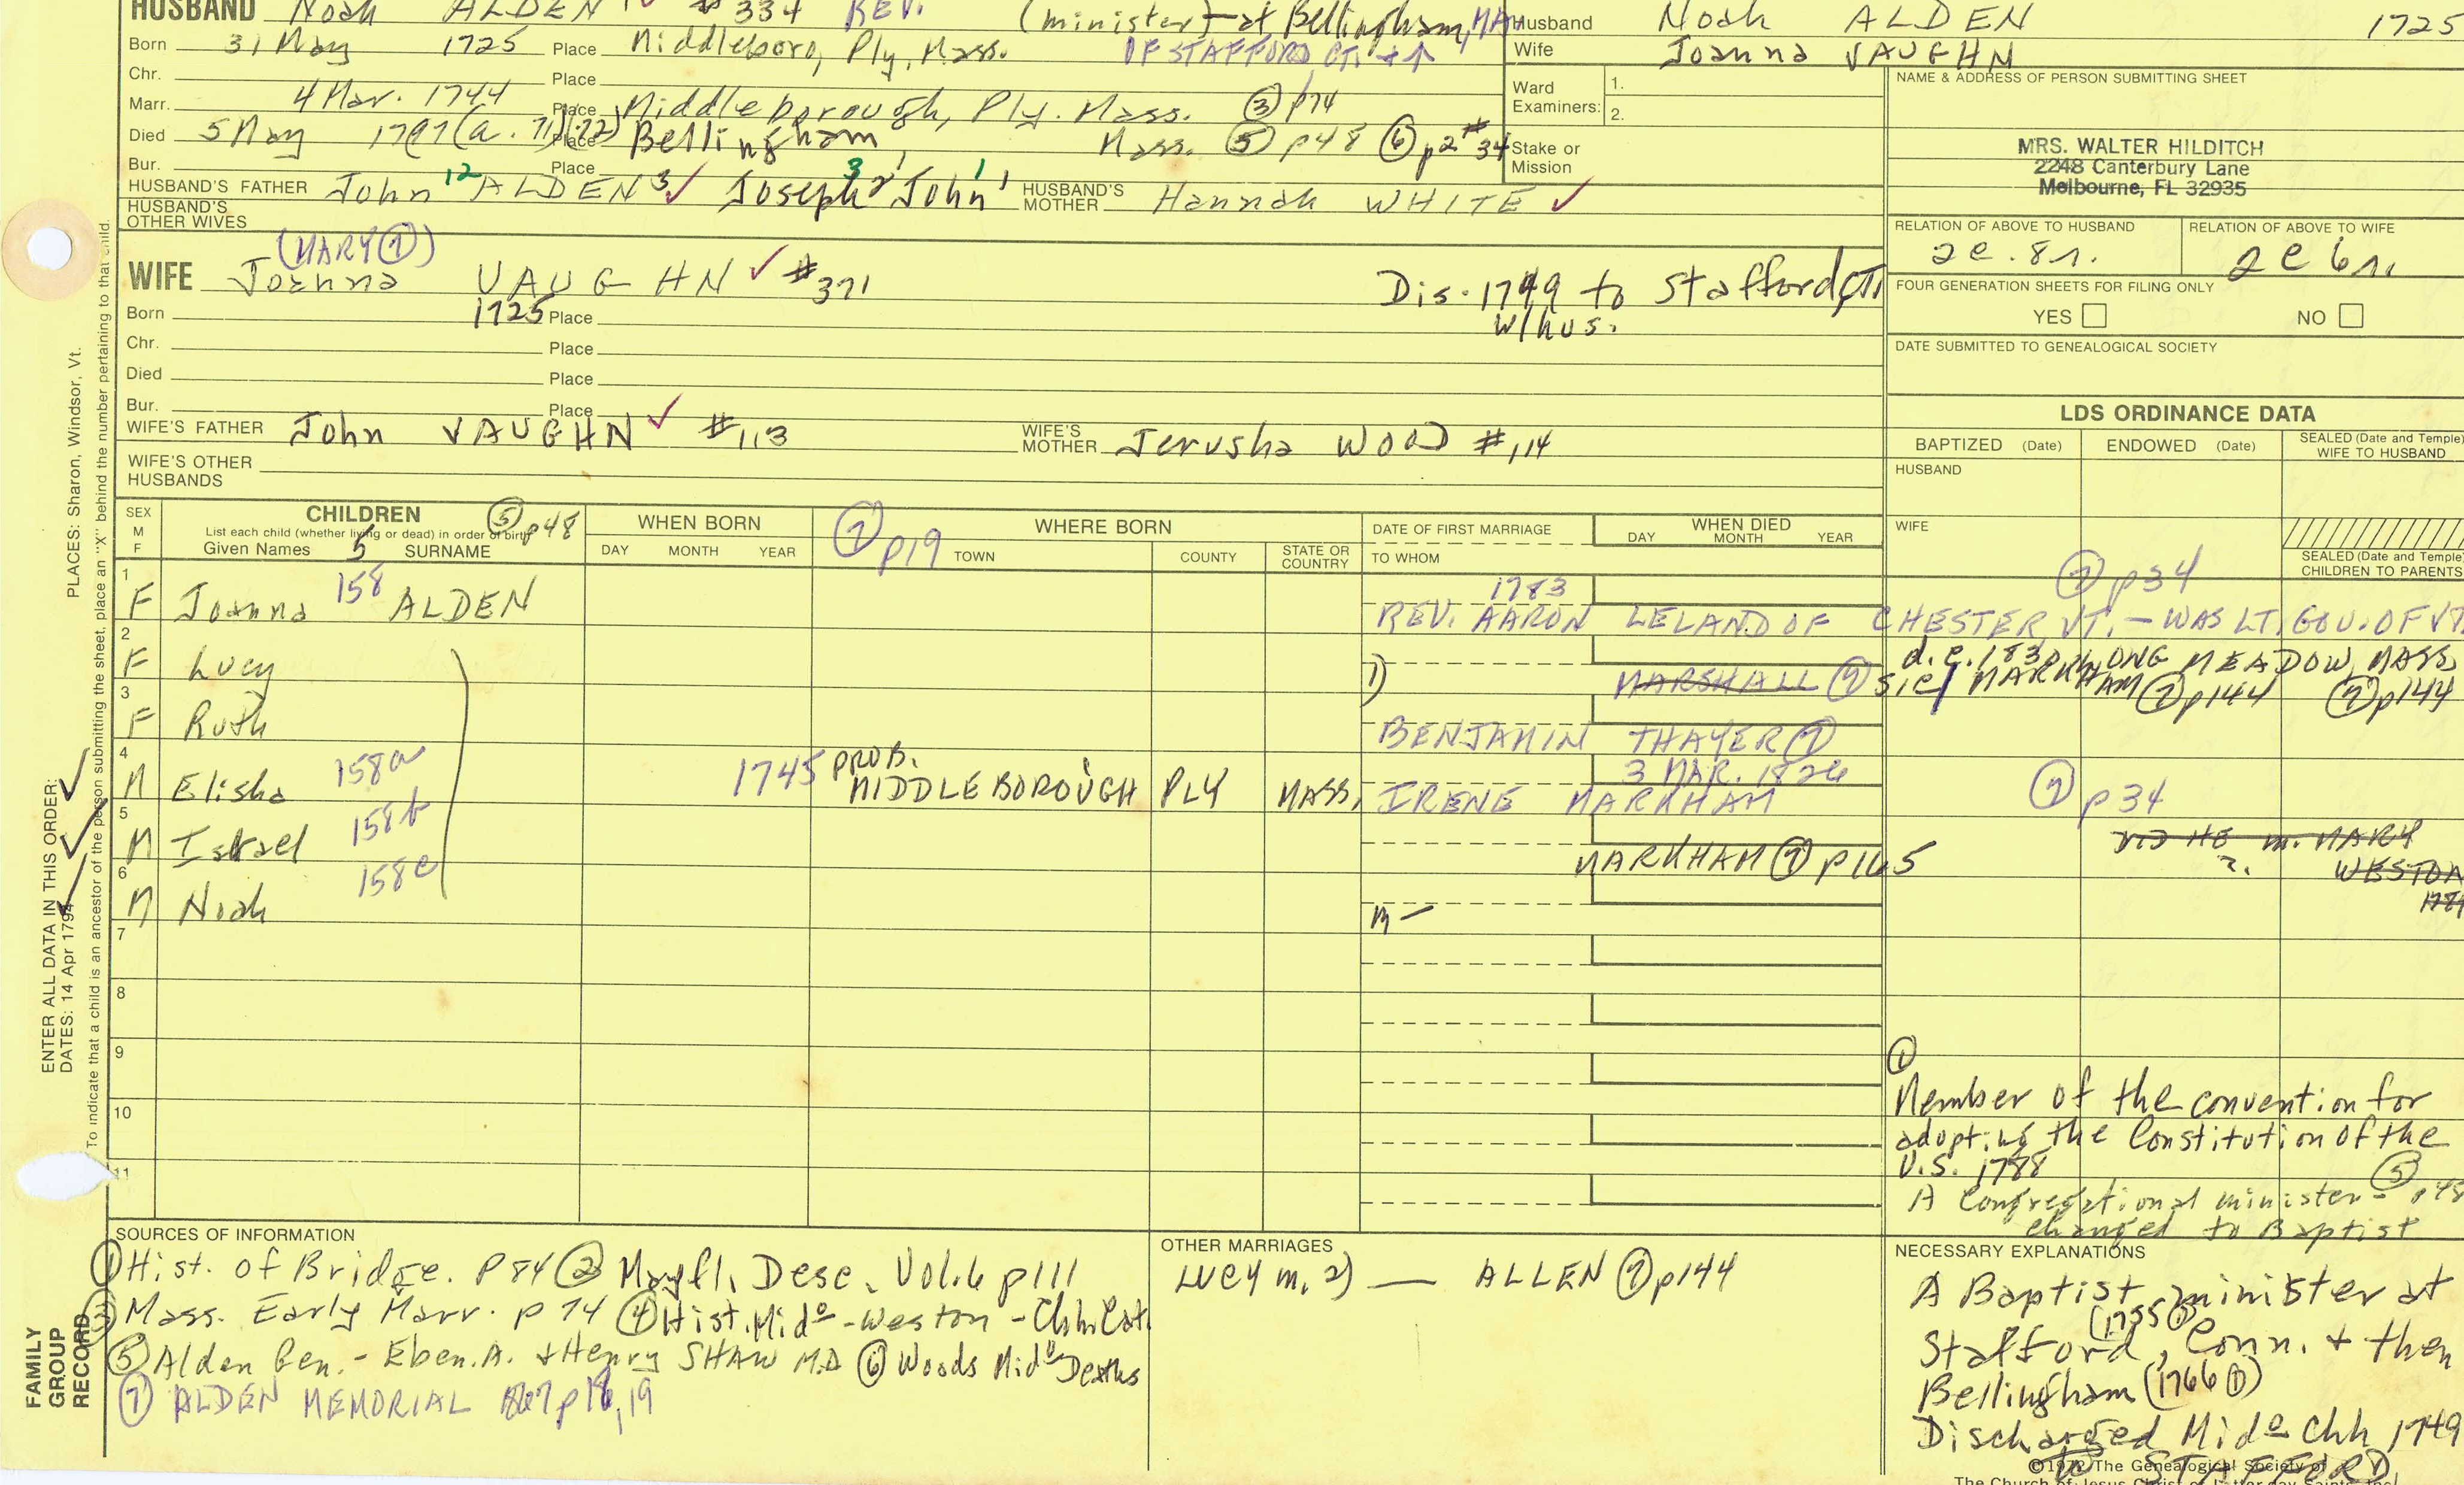 HUSBAND Noah ALDEN # 334 REV. (minister) - at Bellingham, MA
Born 31 May 1725 Place Middleboro, Ply, Mass. OF STAFFORD CT.
Chr. Place
Marr. 4 Mar. 1744 Place Middleborough, Ply. Mass. ③ p74
Died 5 May 1797 (a. 71) (72) Place Bellingham, Mass. ⑤ p48 ⑥ p2 #34
Bur. Place
HUSBAND'S FATHER John 12 ALDEN 3 ✓ Joseph 3 2 John 1 HUSBAND'S MOTHER Hannah WHITE ✓
HUSBAND'S OTHER WIVES
Husband Noah ALDEN 1725
Wife Joanna VAUGHN
Ward Examiners: 1.
2.
Stake or Mission
NAME & ADDRESS OF PERSON SUBMITTING SHEET
MRS. WALTER HILDITCH
2248 Canterbury Lane
Melbourne, FL 32935
RELATION OF ABOVE TO HUSBAND RELATION OF ABOVE TO WIFE
2c. 8r. 2c 6r.
FOUR GENERATION SHEETS FOR FILING ONLY
YES NO
DATE SUBMITTED TO GENEALOGICAL SOCIETY
(MARY ⑦)
WIFE Joanna VAUGHN ✓ #371 Dis. 1749 to Stafford, CT.
w/hus.
Born 1725 Place
Chr. Place
Died Place
Bur. Place
WIFE'S FATHER John VAUGHN ✓ #113 WIFE'S MOTHER Jerusha WOOD #114
WIFE'S OTHER HUSBANDS
LDS ORDINANCE DATA
BAPTIZED (Date) ENDOWED (Date) SEALED (Date and Temple) WIFE TO HUSBAND
HUSBAND
WIFE
SEALED (Date and Temple) CHILDREN TO PARENTS
SEX M F
CHILDREN ⑤ p48
List each child (whether living or dead) in order of birth
Given Names 5 SURNAME
WHEN BORN
DAY MONTH YEAR
⑦ p19 WHERE BORN
TOWN COUNTY STATE OR COUNTRY
DATE OF FIRST MARRIAGE
TO WHOM
WHEN DIED
DAY MONTH YEAR
1 F Joanna 158 ALDEN 1783 ⑦ p34
REV. AARON LELAND OF CHESTER, VT. - WAS LT. GOV. OF VT.
2 F Lucy 1) MARSHALL ⑦ sic/ MARKHAM ⑦ p144 ⑦ p144
d.c. 183 LONG MEADOW, MASS.
3 F Ruth BENJAMIN THAYER ⑦
4 M Elisha 158a 1745 PROB. MIDDLEBOROUGH PLY MASS. 3 MAR. 1826
IRENE MARKHAM ⑦ p34
5 M Israel 158b MARKHAM ⑦ p165
HE m. MARY
?. WESTON
6 M Noah 158c m -
7
8
9
10
11
①
Member of the convention for
adopting the Constitution of the
U.S. 1788 ⑤
A Congregational minister - p48
changed to Baptist
SOURCES OF INFORMATION
① Hist. of Bridge. P 84 ② Mayfl. Desc. Vol. 6 p111
③ Mass. Early Marr. p 74 ④ Hist. Mido - Weston - Chh Cat.
⑤ Alden Gen. - Eben. A. + Henry SHAW M.D ⑥ Woods Mido Deaths
⑦ ALDEN MEMORIAL 1867 p18, 19
OTHER MARRIAGES
LUCY m. 2) — ALLEN ⑦ p144
NECESSARY EXPLANATIONS
A Baptist minister at
(1755 ①)
Stafford, Conn. + then
Bellingham (1766 ①)
Discharged Mido Chh 1749
to STAFFORD
©1972 The Genealogical Society of
The Church of Jesus Christ of Latter-day Saints, Inc.
PLACES: Sharon, Windsor, Vt.
ENTER ALL DATA IN THIS ORDER:
DATES: 14 Apr 1794
To indicate that a child is an ancestor of the person submitting the sheet, place an "X" behind the number pertaining to that child.
FAMILY
GROUP
RECORD